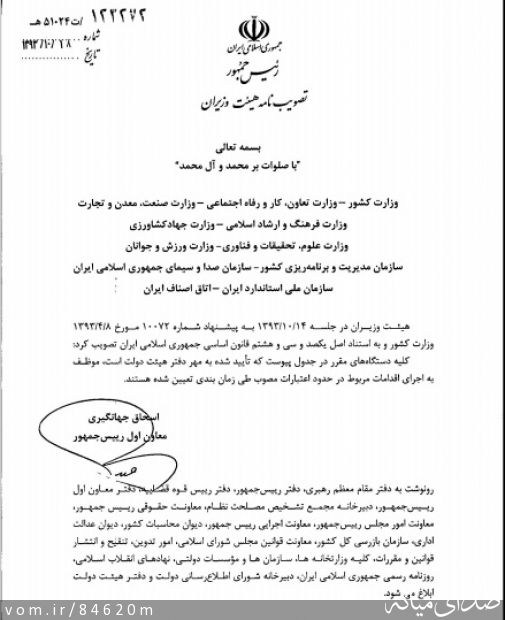 ۱۲۳۲۷۲ /ت۵۱۰۲۴هـ
شماره
۱۳۹۳/۱۰/۲۸
تاریخ
جمهوری اسلامی ایران
رئیس جمهور
تصویب نامه هیئت وزیران
بسمه تعالی
"با صلوات بر محمد و آل محمد"
وزارت کشور – وزارت تعاون، کار و رفاه اجتماعی – وزارت صنعت، معدن و تجارت
وزارت فرهنگ و ارشاد اسلامی – وزارت جهادکشاورزی
وزارت علوم، تحقیقات و فناوری- وزارت ورزش و جوانان
سازمان مدیریت و برنامه‌ریزی کشور- سازمان صدا و سیمای جمهوری اسلامی ایران
سازمان ملی استاندارد ایران – اتاق اصناف ایران
هیئت وزیران در جلسه ۱۳۹۳/۱۰/۱۴ به پیشنهاد شماره ۱۰۰۷۲ مورخ ۱۳۹۳/۴/۸
وزارت کشور و به استناد اصل یکصد و سی و هشتم قانون اساسی جمهوری اسلامی ایران تصویب کرد:
کلیه دستگاه‌های مقرر در جدول پیوست که تأیید شده به مهر دفتر هیئت دولت است، موظف
به اجرای اقدامات مربوط در حدود اعتبارات مصوب طی زمان بندی تعیین شده هستند.
اسحاق جهانگیری
معاون اول رییس‌جمهور
رونوشت به دفتر مقام معظم رهبری، دفتر رییس‌جمهور، دفتر رییس قوه قضاییه، دفتر معاون اول
رییس‌جمهور، دبیرخانه مجمع تشخیص مصلحت نظام، معاونت حقوقی رییس جمهور،
معاونت امور مجلس رییس‌جمهور، معاونت اجرایی رییس جمهور، دیوان محاسبات کشور، دیوان عدالت
اداری، سازمان بازرسی کل کشور، معاونت قوانین مجلس شورای اسلامی، امور تدوین، تنقیح و انتشار
قوانین و مقررات، کلیه وزارتخانه ها، سازمان ها و مؤسسات دولتی، نهادهای انقلاب اسلامی،
روزنامه رسمی جمهوری اسلامی ایران، دبیرخانه شورای اطلاع‌رسانی دولت و دفتر هیئت دولت
ابلاغ می شود.
صدای میانه
vom.ir/84620m